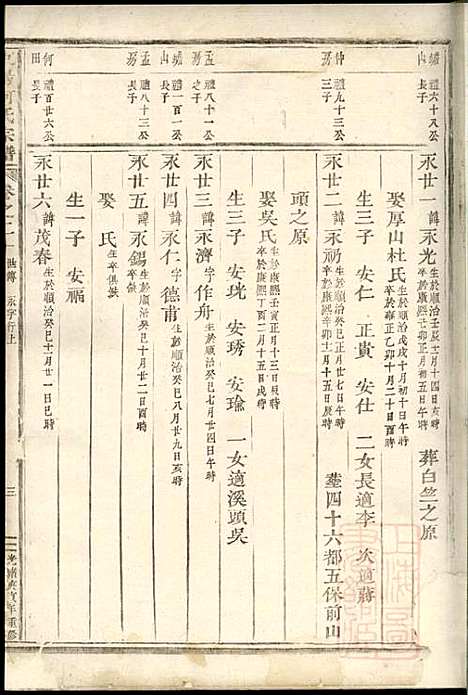 塘山
禮六十八公
長子
永廿一諱永光
生於順治壬辰十一月十四日亥時
卒於康熙己卯正月初五日申時
葬白竺之原
娶厚山杜氏
生於順治戊戌十月初十日午時
卒於雍正乙卯十月二十日酉時
生三子 安仁 正貴 安仕 二女長適李 次適蔣
仲房
禮九十三公
三子
永廿二諱永祊
生於順治癸巳正月廿七日午時
卒於康熙辛卯十一月十五日辰時
塟四十六都五保前山
頭之原
娶吳氏
生於康熙壬寅正月十三日寅時
卒於康熙丁酉二月十五日辰時
生三子 安珖 安琇 安瑜 一女適溪頭吳
孟房
禮八十一公
之子
永廿三諱永濟字作舟
生於順治癸巳七月廿四日卯時
塘山
禮一百一公
長子
永廿四諱永仁字德甫
生於順治癸巳八月廿九日亥時
孟房
禮八十三公
長子
永廿五諱永錫
生於順治癸巳十月廿二日酉時
娶 氏
生卒俱缺
何田
禮百廿六公
長子
永廿六諱茂春
生於順治癸巳十一月廿一日巳時
生一子 安福
宗譜
卷之十一
世傳 永字行上
三
光緒庚寅年重修